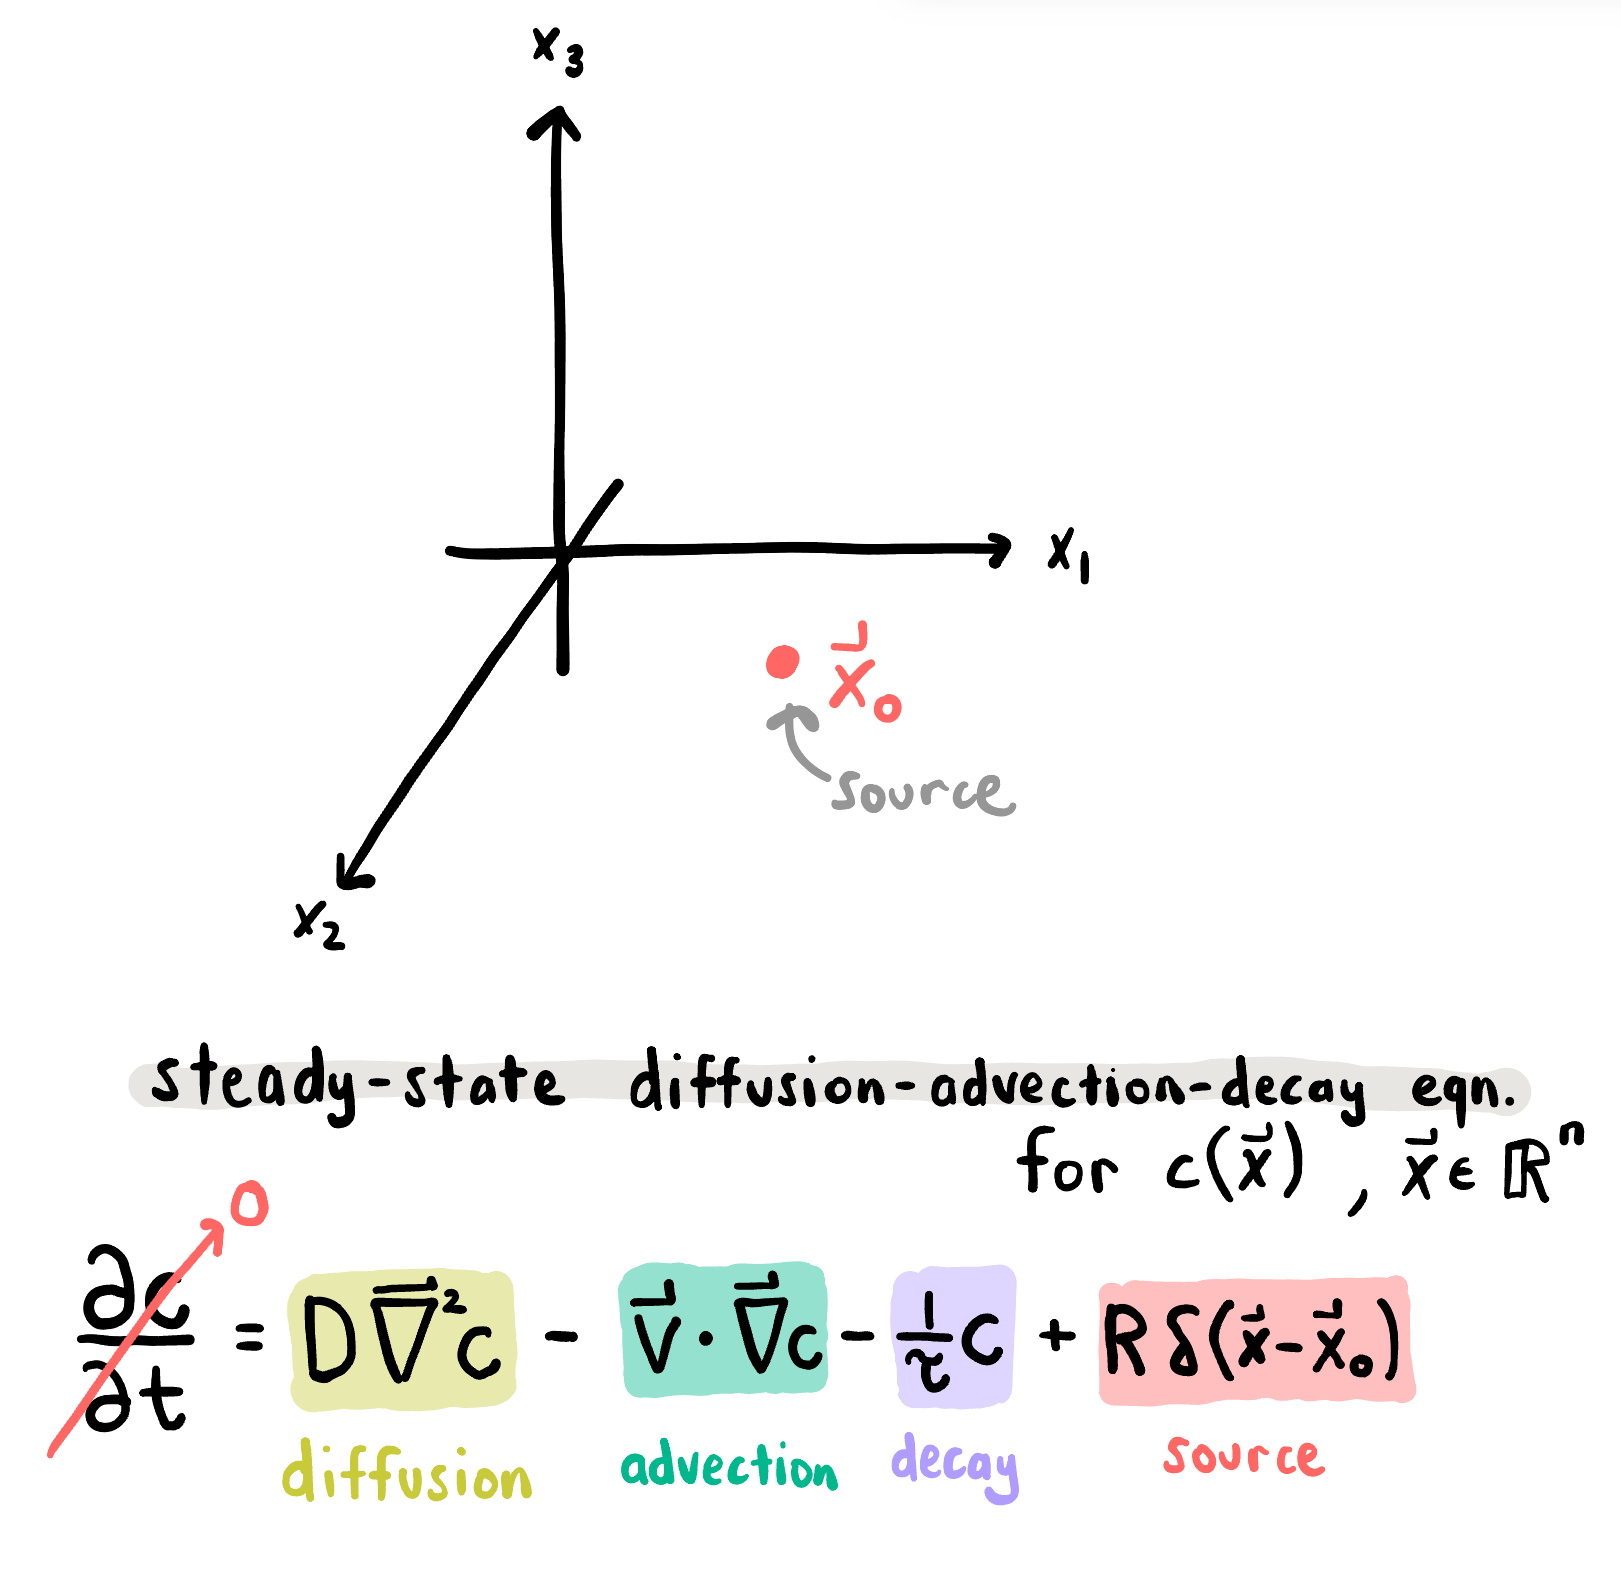 x₃
x₁
x⃗₀
source
x₂
steady-state diffusion-advection-decay eqn.
for c(x⃗) , x⃗ ∈ ℝⁿ
0
∂c/∂t = D∇⃗²c - v⃗·∇⃗c - 1/τ c + R δ(x⃗-x⃗₀)
diffusion advection decay source